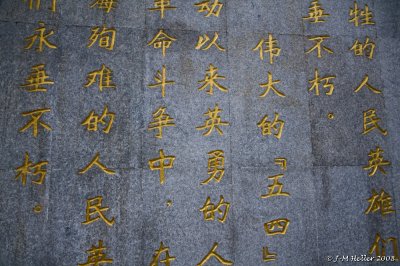 牲的人民英雄们
垂不朽。
伟大的『五四』
动以来英勇的人
革命斗争中,在
海殉难的人民英
们永垂不朽。
© J-M Heller 2008